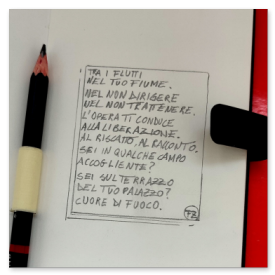 TRA I FLUTTI
NEL TUO FIUME.
NEL NON DIRIGERE
NEL NON TRATTENERE.
L'OPERA TI CONDUCE
ALLA LIBERAZIONE.
AL RISCATTO, AL RACCONTO.
SEI IN QUALCHE CAMPO
ACCOGLIENTE?
SEI SUL TERRAZZO
DEL TUO PALAZZO?
CUORE DI FUOCO.